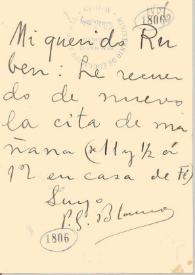 1806
Mi querido Ru
ben: Le recuer
do de nuevo
la cita de ma
ñana (x 11 y ½ á
12 en casa de Fé)
Suyo
1806